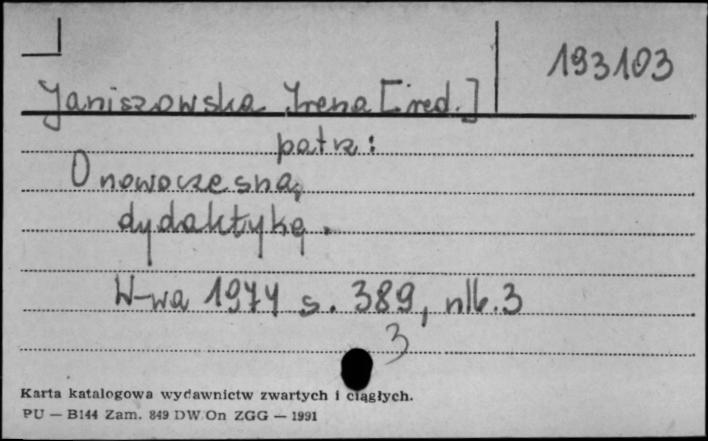 193103
Janiszowska Irena [red.]
patrz:
O nowoczesną
dydaktykę.
W-wa 1974 s. 389, nlb. 3
3
Karta katalogowa wydawnictw zwartych i ciągłych.
PU — B144 Zam. 849 DW.On ZGG — 1991